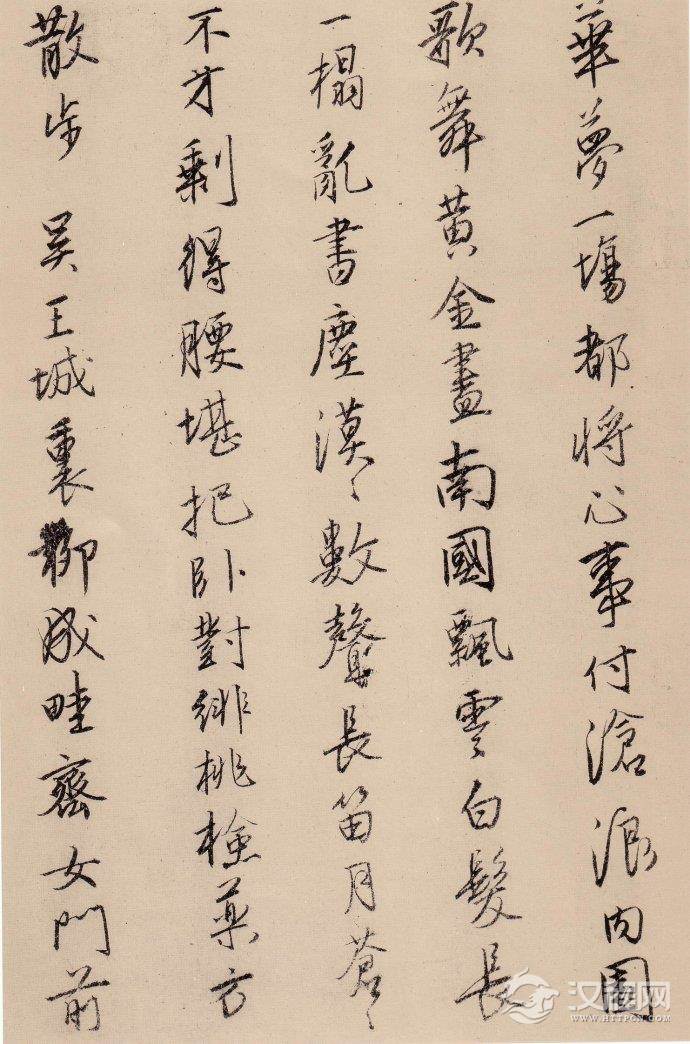 華夢一塲都將心事付滄浪內園
歌舞黃金盡南國飄零白髮長
一榻亂書塵漠〻數聲長笛月蒼〻
不才剩得腰堪把臥對緋桃檢藥方
散步 吳王城裏柳成畦齊女門前
汉程网
WWW.HTTPCN.COM